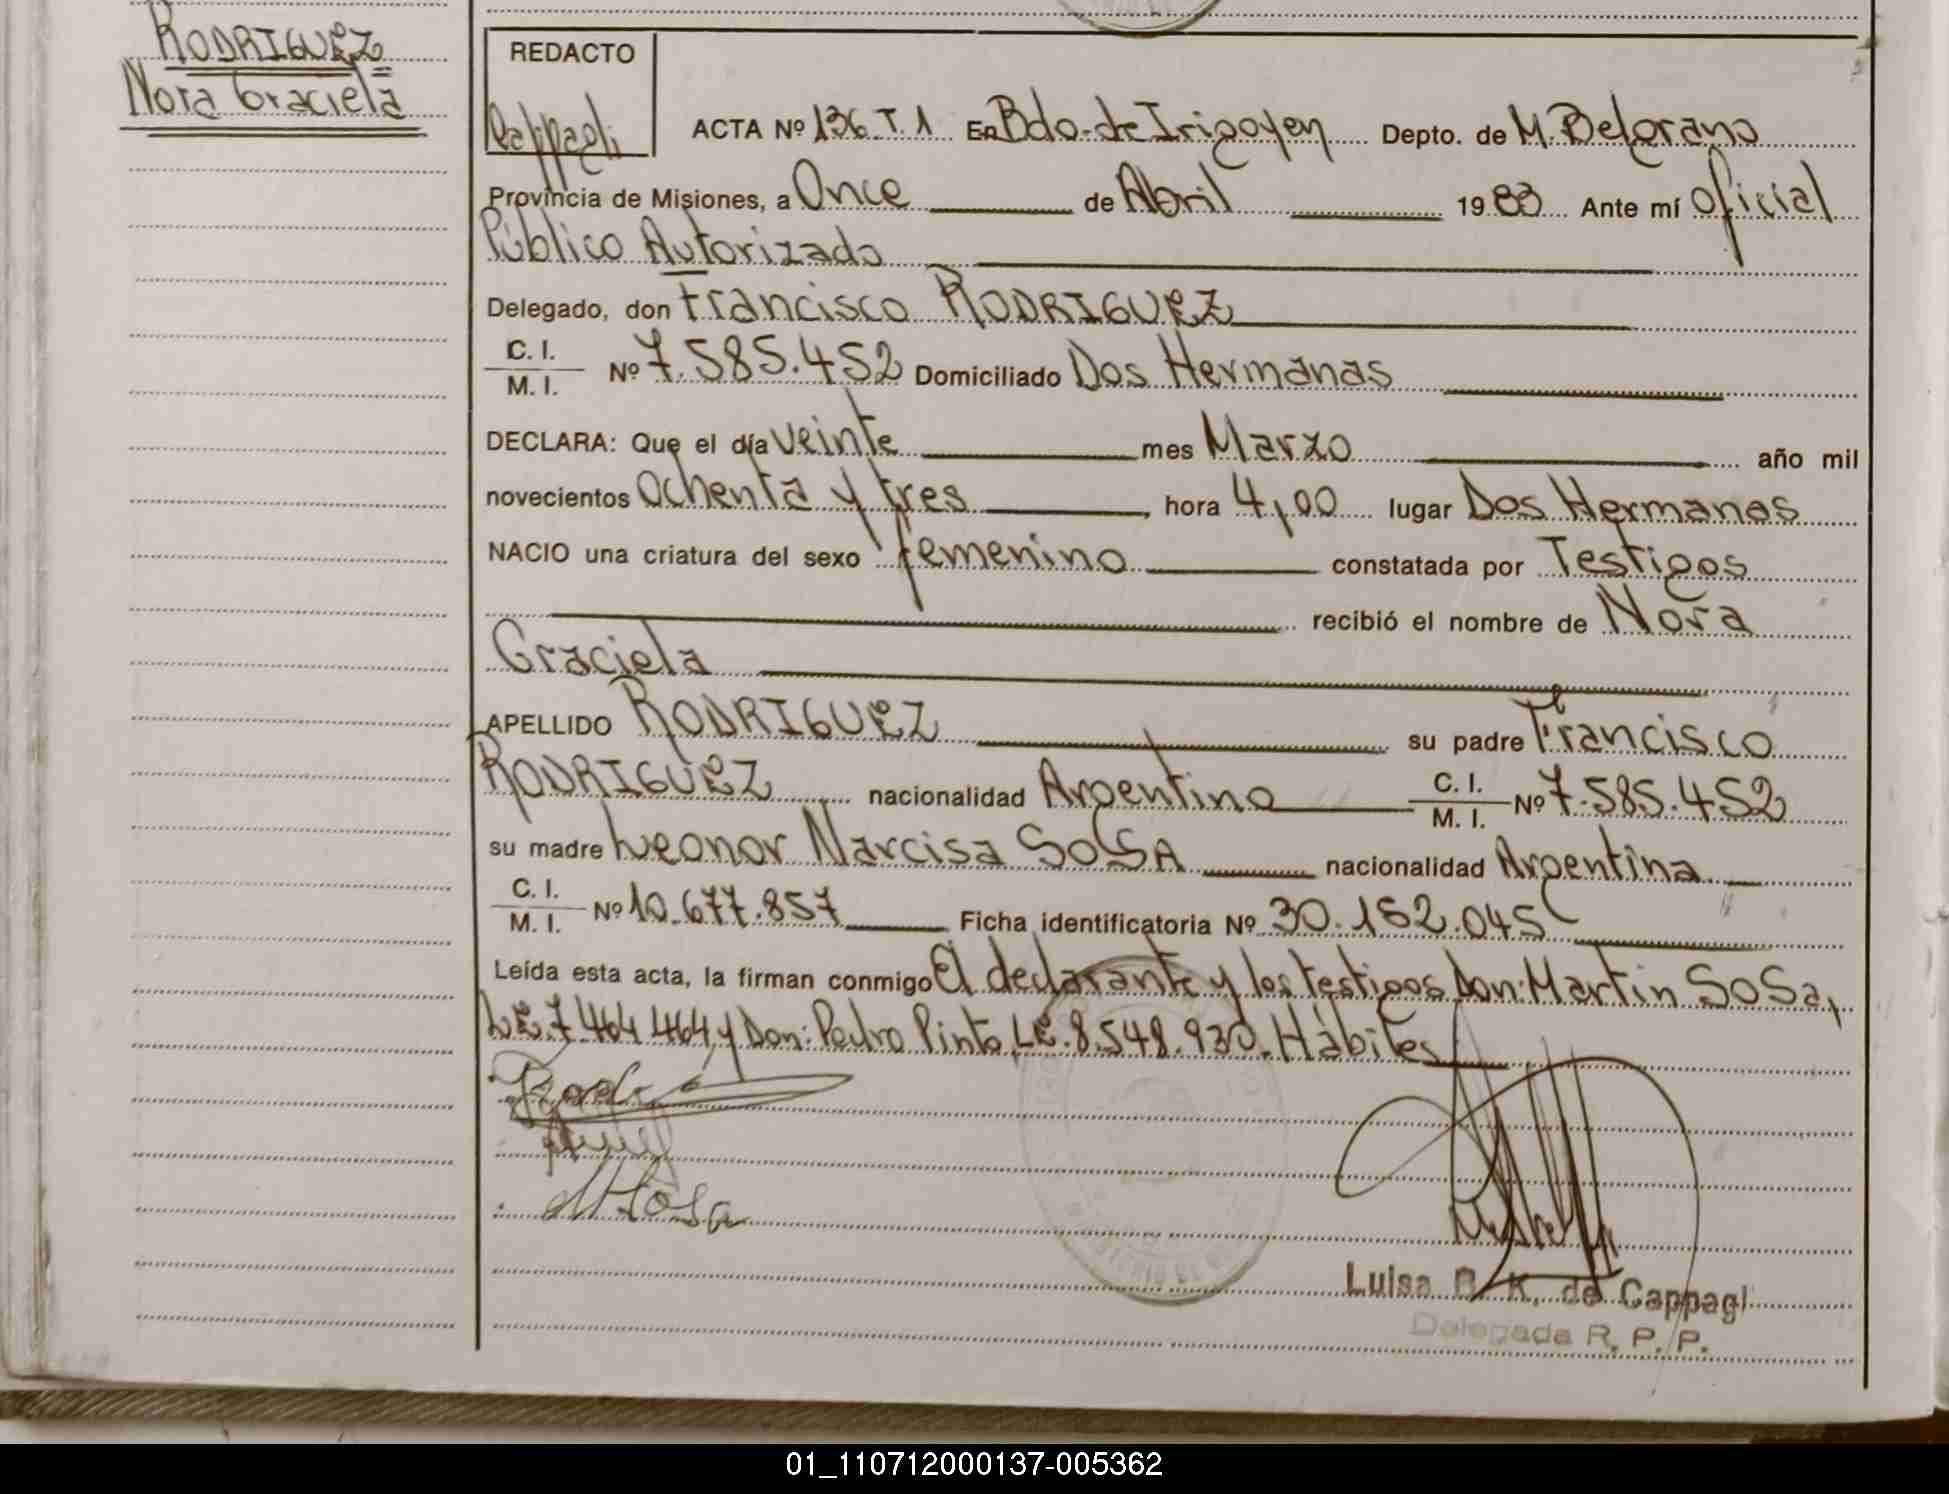 RODRIGUEZ
Nora Graciela
REDACTO
Cappagli
ACTA Nº 136 T. 1 En Bdo. de Irigoyen Depto. de M. Belgrano
Provincia de Misiones, a Once de Abril 1983 Ante mí Oficial
Público Autorizado
Delegado, don Francisco RODRIGUEZ
C. I.
M. I. Nº 7.585.452 Domiciliado Dos Hermanas
DECLARA: Que el día veinte mes Marzo año mil
novecientos Ochenta y tres, hora 4,00 lugar Dos Hermanas
NACIO una criatura del sexo femenino constatada por Testigos
recibió el nombre de Nora
Graciela
APELLIDO RODRIGUEZ su padre Francisco
RODRIGUEZ nacionalidad Argentina C. I.
M. I. Nº 7.585.452
su madre Leonor Narcisa SOSA nacionalidad Argentina
C. I.
M. I. Nº 10.677.857 Ficha identificatoria Nº 30.152.045
Leída esta acta, la firman conmigo El declarante y los testigos Don: Martin SOSa,
LE. 7.464.464 y Don: Pedro Pinto, LE. 8.548.930. Hábiles
M Sosa
Luisa K. de Cappagli
Delegada R. P. P.
01_110712000137-005362